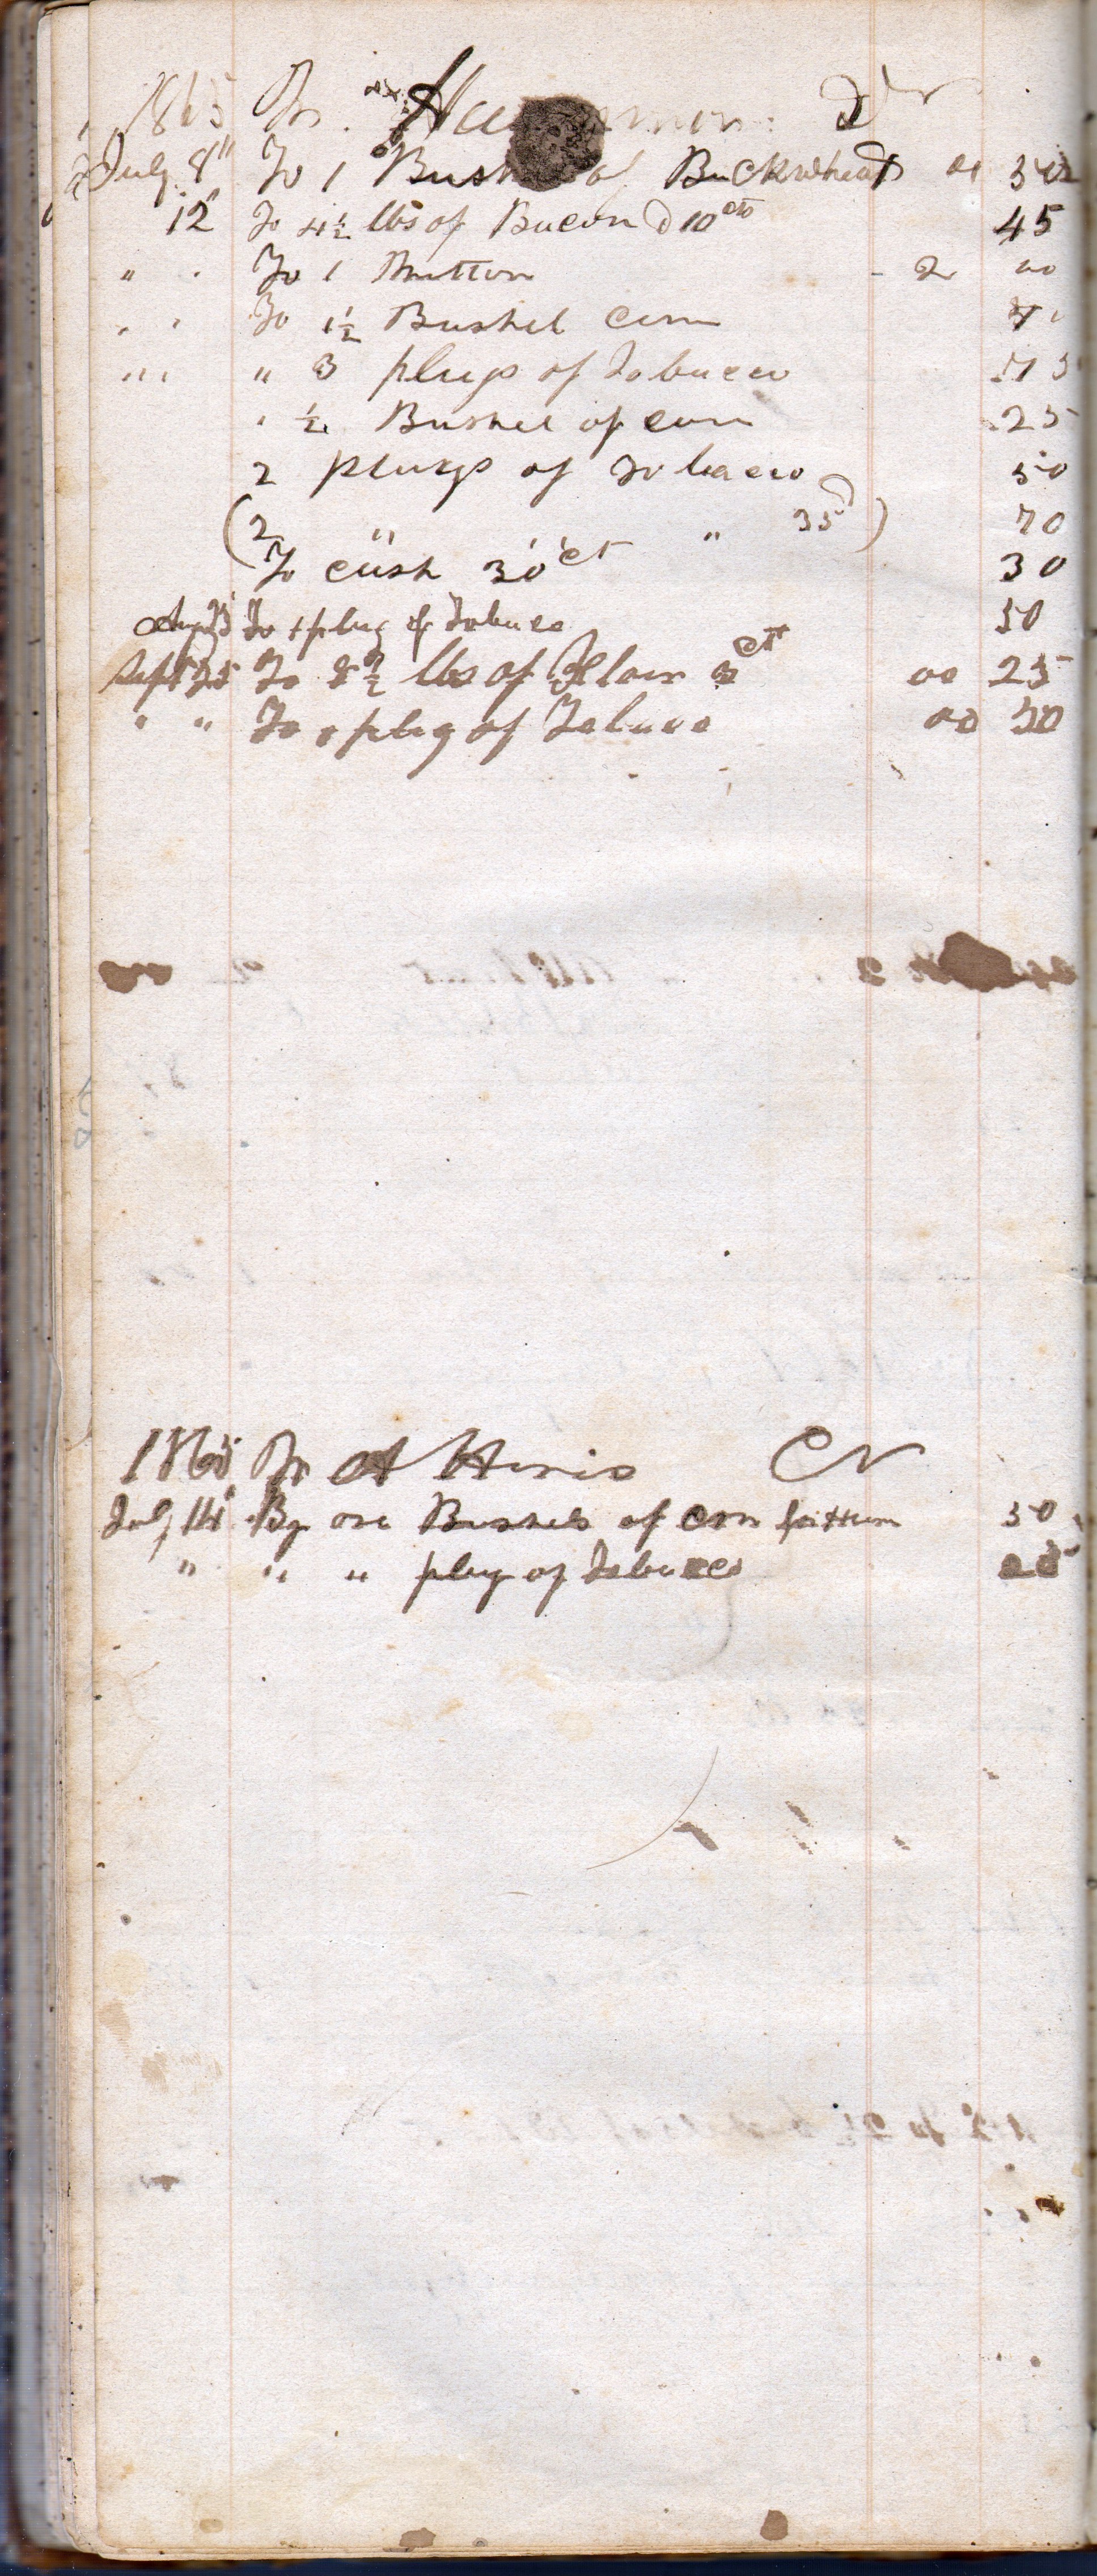 1865 Mr. Dr
July 8" To 1 Bush of Buckwheat
12" To 4½ lbs of Bacon @ 10 cts 45
" To 1 Mutton - 2 00
To 1½ Bushel Corn
" 3 plugs of Tobacco 75
½ Bushel of corn 25
2 plugs of Tobacco 50
(2 " " 35) 70
To cash 30 ct 30
Aug To 1 plug of Tobacco 50
Sept 25 To 8½ lbs of Flour 3 cts 00 25
" " To 1 plug of Tobacco 00 50
1865 Mr A Hinis Cr
July 14" By one Bushels of corn 50
" " " plug of Tobacco 25